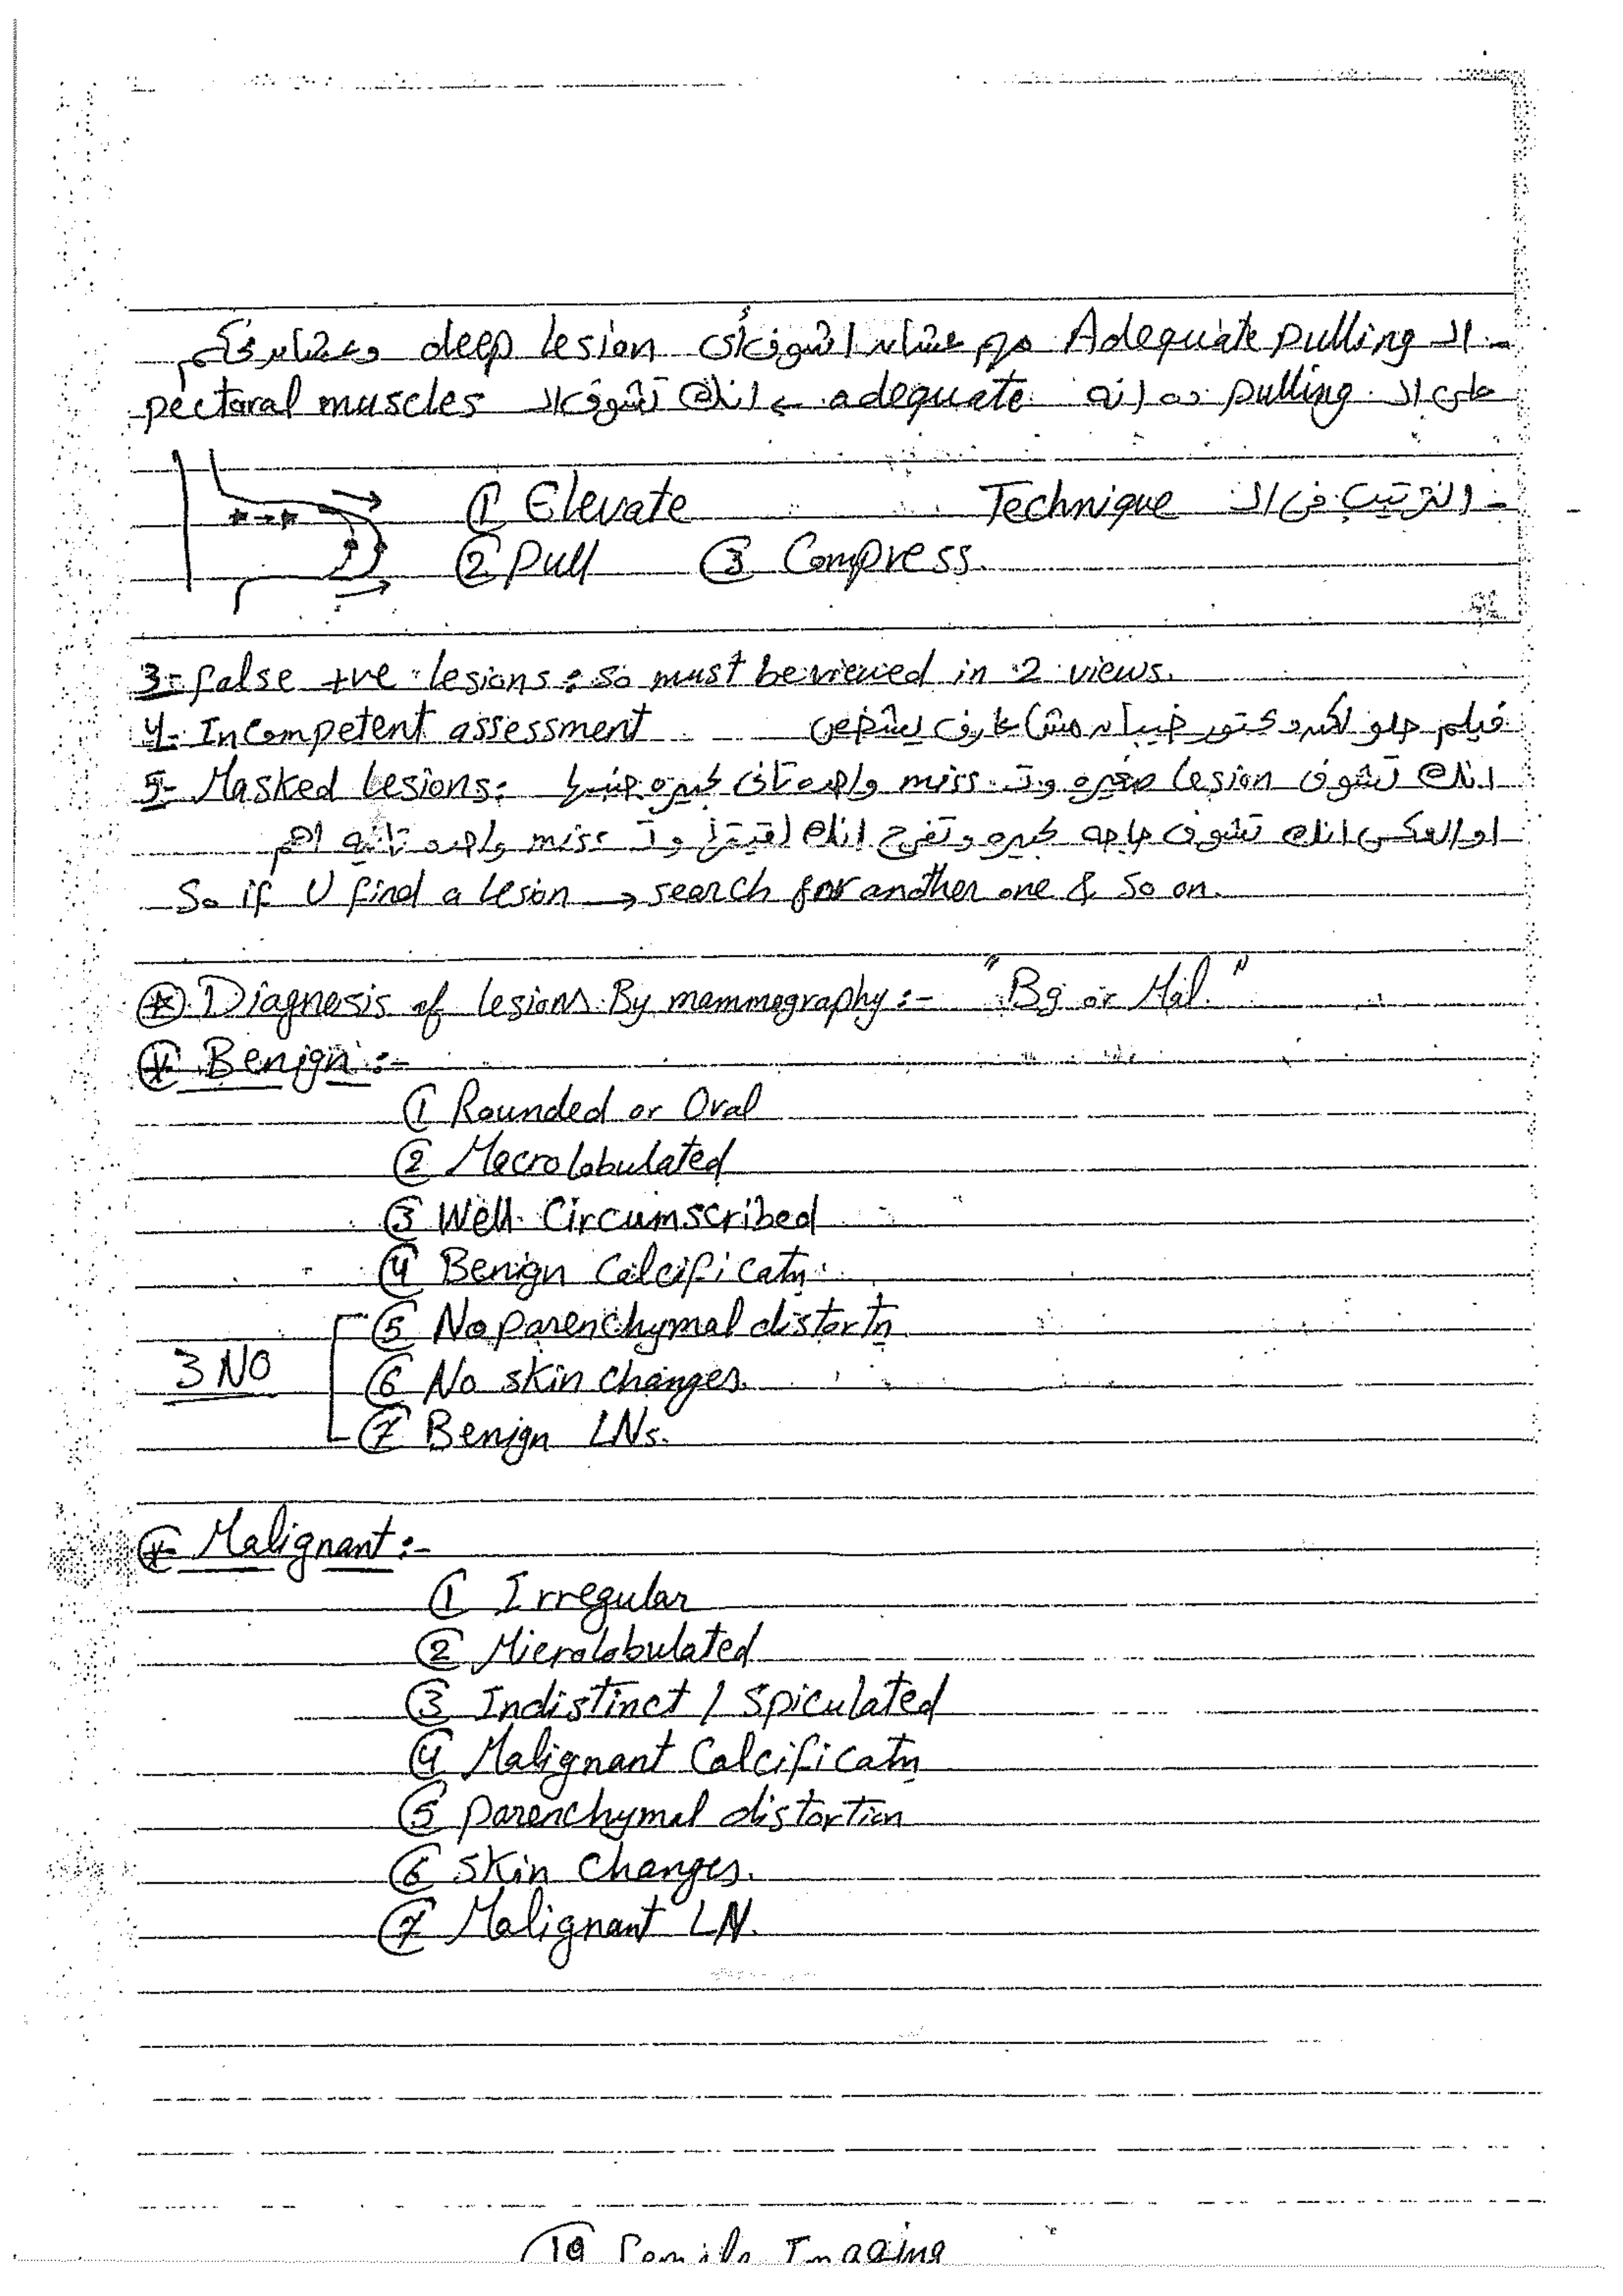 - الـ Adequate pulling مهم عشان اشوف أى deep lesion وعشان احكم
على الـ pulling ده انه adequate ← انك تشوف الـ pectoral muscles
- الترتيب فى الـ Technique
① Elevate
② Pull ③ Compress.
3- false +ve lesions: so must be viewed in 2 views.
4- Incompetent assessment فيلم حلو لكن دكتور خيبان مش عارف يشخص
5- Masked lesions: انك تشوف lesion صغيره وتـ miss واحده تانى كبيره جنبها
او العكس انك تشوف حاجه كبيره وتفرح انك لقيتها وتـ miss واحده تانيه اهم
So if U find a lesion → search for another one & so on.
* Diagnosis of lesions By mammography:- "Bg or Mal."
* Benign:-
① Rounded or Oval
② Macrolobulated
③ Well Circumscribed
④ Benign Calcificatn
⑤ No parenchymal distortn
3 NO ⑥ No skin changes.
⑦ Benign LNs.
* Malignant:-
① Irregular
② Microlobulated
③ Indistinct / Spiculated
④ Malignant Calcificatn
⑤ parenchymal distortion
⑥ skin changes.
⑦ Malignant LN.
Imaging